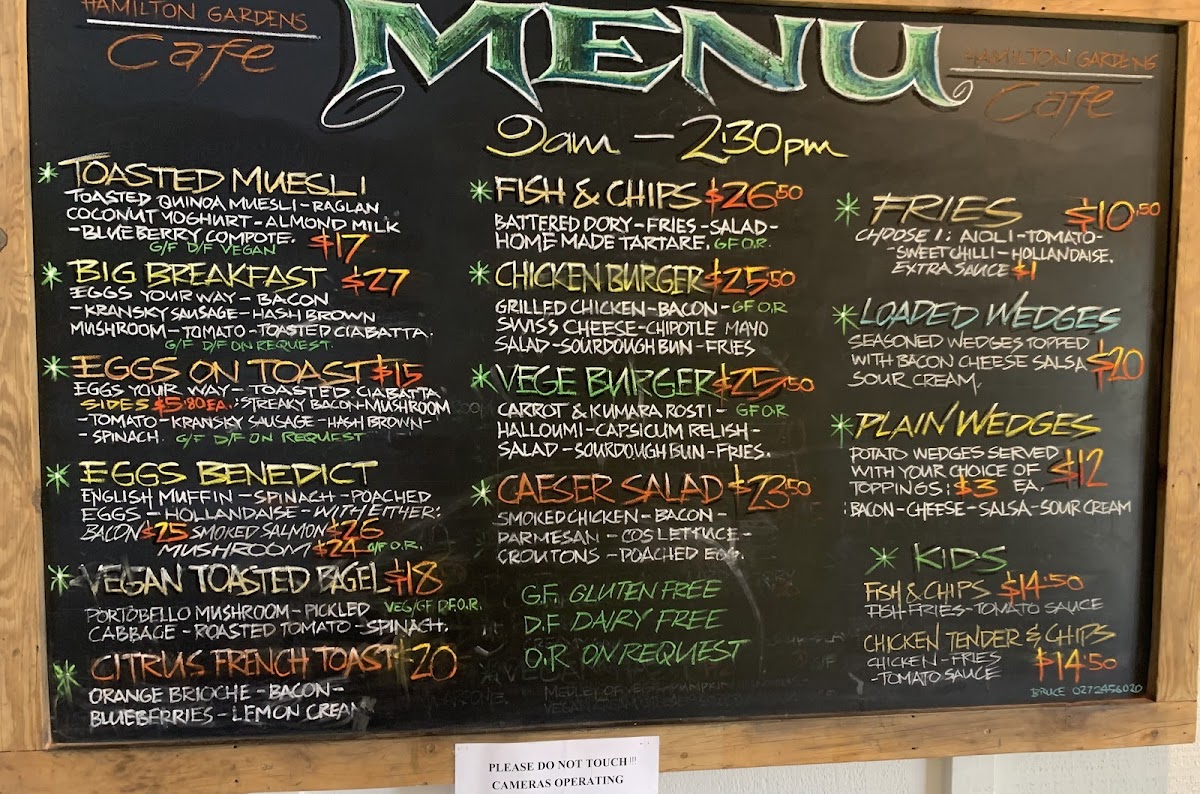 HAMILTON GARDENS
Cafe
MENU
HAMILTON GARDENS
Cafe
9am - 2:30pm
* TOASTED MUESLI
TOASTED QUINOA MUESLI - RAGLAN
COCONUT YOGHURT - ALMOND MILK
- BLUEBERRY COMPOTE. $17
G/F D/F VEGAN
* BIG BREAKFAST $27
EGGS YOUR WAY - BACON
- KRANSKY SAUSAGE - HASH BROWN
MUSHROOM - TOMATO - TOASTED CIABATTA.
G/F D/F ON REQUEST.
* EGGS ON TOAST $15
EGGS YOUR WAY - TOASTED CIABATTA
SIDES $5.80 EA. : STREAKY BACON - MUSHROOM
- TOMATO - KRANSKY SAUSAGE - HASH BROWN -
- SPINACH. G/F D/F ON REQUEST
* EGGS BENEDICT
ENGLISH MUFFIN - SPINACH - POACHED
EGGS - HOLLANDAISE - WITH EITHER:
BACON $25 SMOKED SALMON $26
MUSHROOM $24 G/F O.R.
* VEGAN TOASTED BAGEL $18
PORTOBELLO MUSHROOM - PICKLED VEG/GF D.F O.R.
CABBAGE - ROASTED TOMATO - SPINACH.
* CITRUS FRENCH TOAST $20
ORANGE BRIOCHE - BACON -
BLUEBERRIES - LEMON CREAM
* FISH & CHIPS $26.50
BATTERED DORY - FRIES - SALAD -
HOME MADE TARTARE. GF O.R.
* CHICKEN BURGER $25.50
GRILLED CHICKEN - BACON - GF O.R
SWISS CHEESE - CHIPOTLE MAYO
SALAD - SOURDOUGH BUN - FRIES
* VEGE BURGER $25.50
CARROT & KUMARA ROSTI - GF O.R
HALLOUMI - CAPSICUM RELISH -
SALAD - SOURDOUGH BUN - FRIES.
* CAESER SALAD $23.50
SMOKED CHICKEN - BACON -
PARMESAN - COS LETTUCE -
CROUTONS - POACHED EGG.
G.F. GLUTEN FREE
D.F DAIRY FREE
O.R ON REQUEST
* FRIES $10.50
CHOOSE 1: AIOLI - TOMATO -
- SWEET CHILLI - HOLLANDAISE.
EXTRA SAUCE $1
* LOADED WEDGES
SEASONED WEDGES TOPPED
WITH BACON CHEESE SALSA $20
SOUR CREAM,
* PLAIN WEDGES
POTATO WEDGES SERVED
WITH YOUR CHOICE OF $12
TOPPINGS: $3 EA.
: BACON - CHEESE - SALSA - SOUR CREAM
* KIDS
FISH & CHIPS $14.50
FISH - FRIES - TOMATO SAUCE
CHICKEN TENDER & CHIPS
CHICKEN - FRIES $14.50
- TOMATO SAUCE
BRUCE 0272456020
PLEASE DO NOT TOUCH!!!
CAMERAS OPERATING